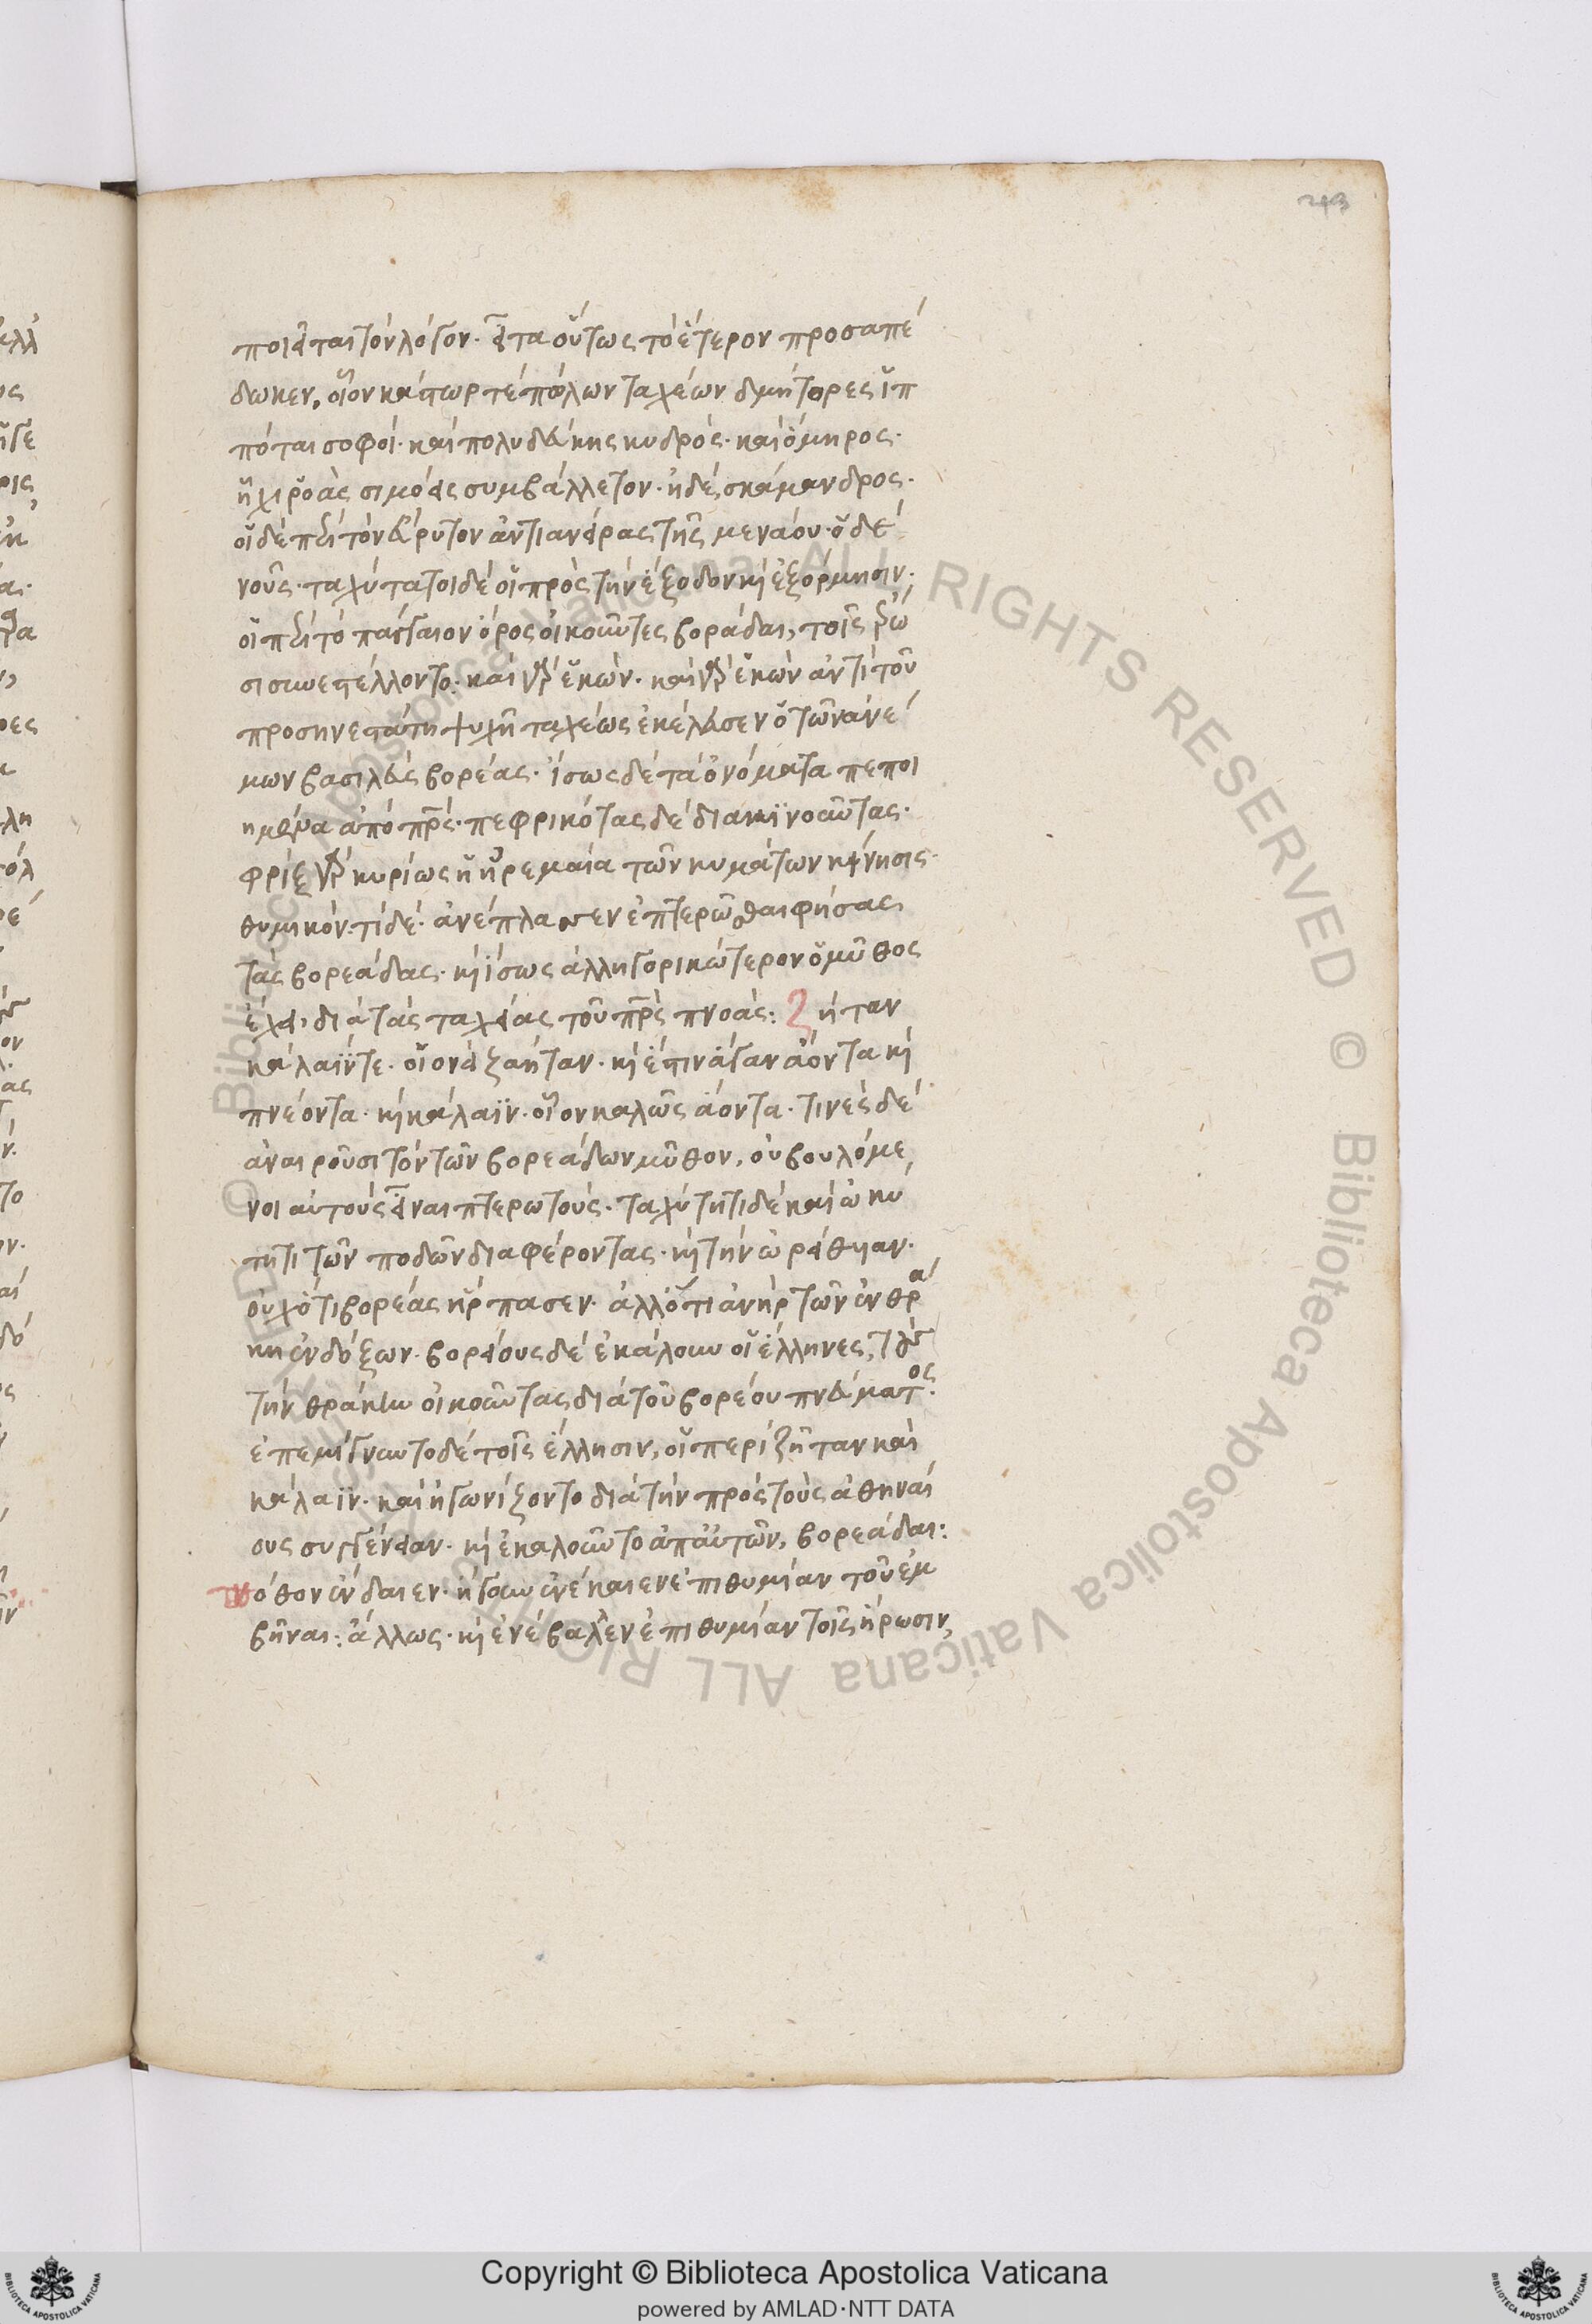 243
ποιεῖται τὸν λόγον· εἶτα οὕτως τὸ ἕτερον προσαπέ
δωκεν, οἷον κάστωρ τὲ πώλων ταχέων δμήτορες ἱπ
πόται σοφοί· καὶ πολυδεύκης κυδρός· καὶ ὅμηρος·
ἧχι ῥοὰς σιμόεις συμβάλλετον· ἠδὲ σκάμανδρος·
οἱ δὲ περὶ τὸν εὔρυτον ἀντιανείρας τῆς μενάου· ὁ δὲ
νοῦς· ταχύτατοι δὲ οἱ πρὸς τὴν ἔξοδον κὶ ἐξόρμησιν·
οἱ περὶ τὸ παγγαιον ὄρος οἰκοῦντες βοράδαι, τοῖς ἥρω
σι συνεστέλλοντο· καὶ γὰρ ἑκών· καὶ γὰρ ἑκὼν ἀντὶ τοῦ
προσηνεστάτη ψυχῆ ταχέως ἐκέλευσεν ὁ τῶν ἀνέ
μων βασιλεὺς βορέας· ἴσως δὲ τὰ ὀνόματα πεποι
ημένα ἀπὸ πρς· πεφρικότας δὲ διακινοῦντας·
φρὶξ γὰρ κυρίως ἡ ἠρεμαία τῶν κυμάτων κίνησις·
θυμικόν· τί δέ· ἀνέπλασεν ἐπτερῶσθαι φήσας
τὰς βορεάδας· κὶ ἴσως ἀλληγορικώτερον ὁ μῦθος
ἔχει, διὰ τὰς ταχείας τοῦ πρς πνοάς: ζήταν
κάλαΐν τε· οἱονεὶ ζαήταν· κὶ ἔστιν ἄγαν ἀόντα κὶ
πνέοντα· κὶ κάλαϊν· οἷον καλῶς ἄοντα· τινὲς δὲ
ἀναιροῦσι τὸν τῶν βορεάδων μῦθον, οὐ βουλόμε
νοι αὐτοὺς εἶναι πτερωτούς· ταχύτητι δὲ καὶ ὠκυ
τητι τῶν ποδῶν διαφέροντας· κὶ τὴν ὠρείθυιαν·
οὐχ ὅτι βορέας ἥρπασεν· ἀλλ' ὅτι ἀνὴρ τῶν ἐν θρά
κη ἐνδόξων· βορείους δὲ ἐκάλουν οἱ ἕλληνες, τοὺς
τὴν θράκην οἰκοῦντας διὰ τοῦ βορέου πνεύματος·
ἐπεμίγνυντο δὲ τοῖς ἕλλησιν, οἱ περὶ ζήταν καὶ
κάλαϊν· καὶ ἠγωνίζοντο διὰ τὴν πρὸς τοὺς ἀθηναί
ους συγγένειαν· κὶ ἐκαλοῦντο ἀπ' αὐτῶν, βορεάδαι:
πόθον ἔνδαιεν· ἤγουν ἐνέκαιεν ἐπιθυμίαν τοῦ ἐμ
βῆναι: ἄλλως· κὶ ἐνέβαλεν ἐπιθυμίαν τοῖς ἥρωσιν,
Copyright © Biblioteca Apostolica Vaticana
powered by AMLAD·NTT DATA